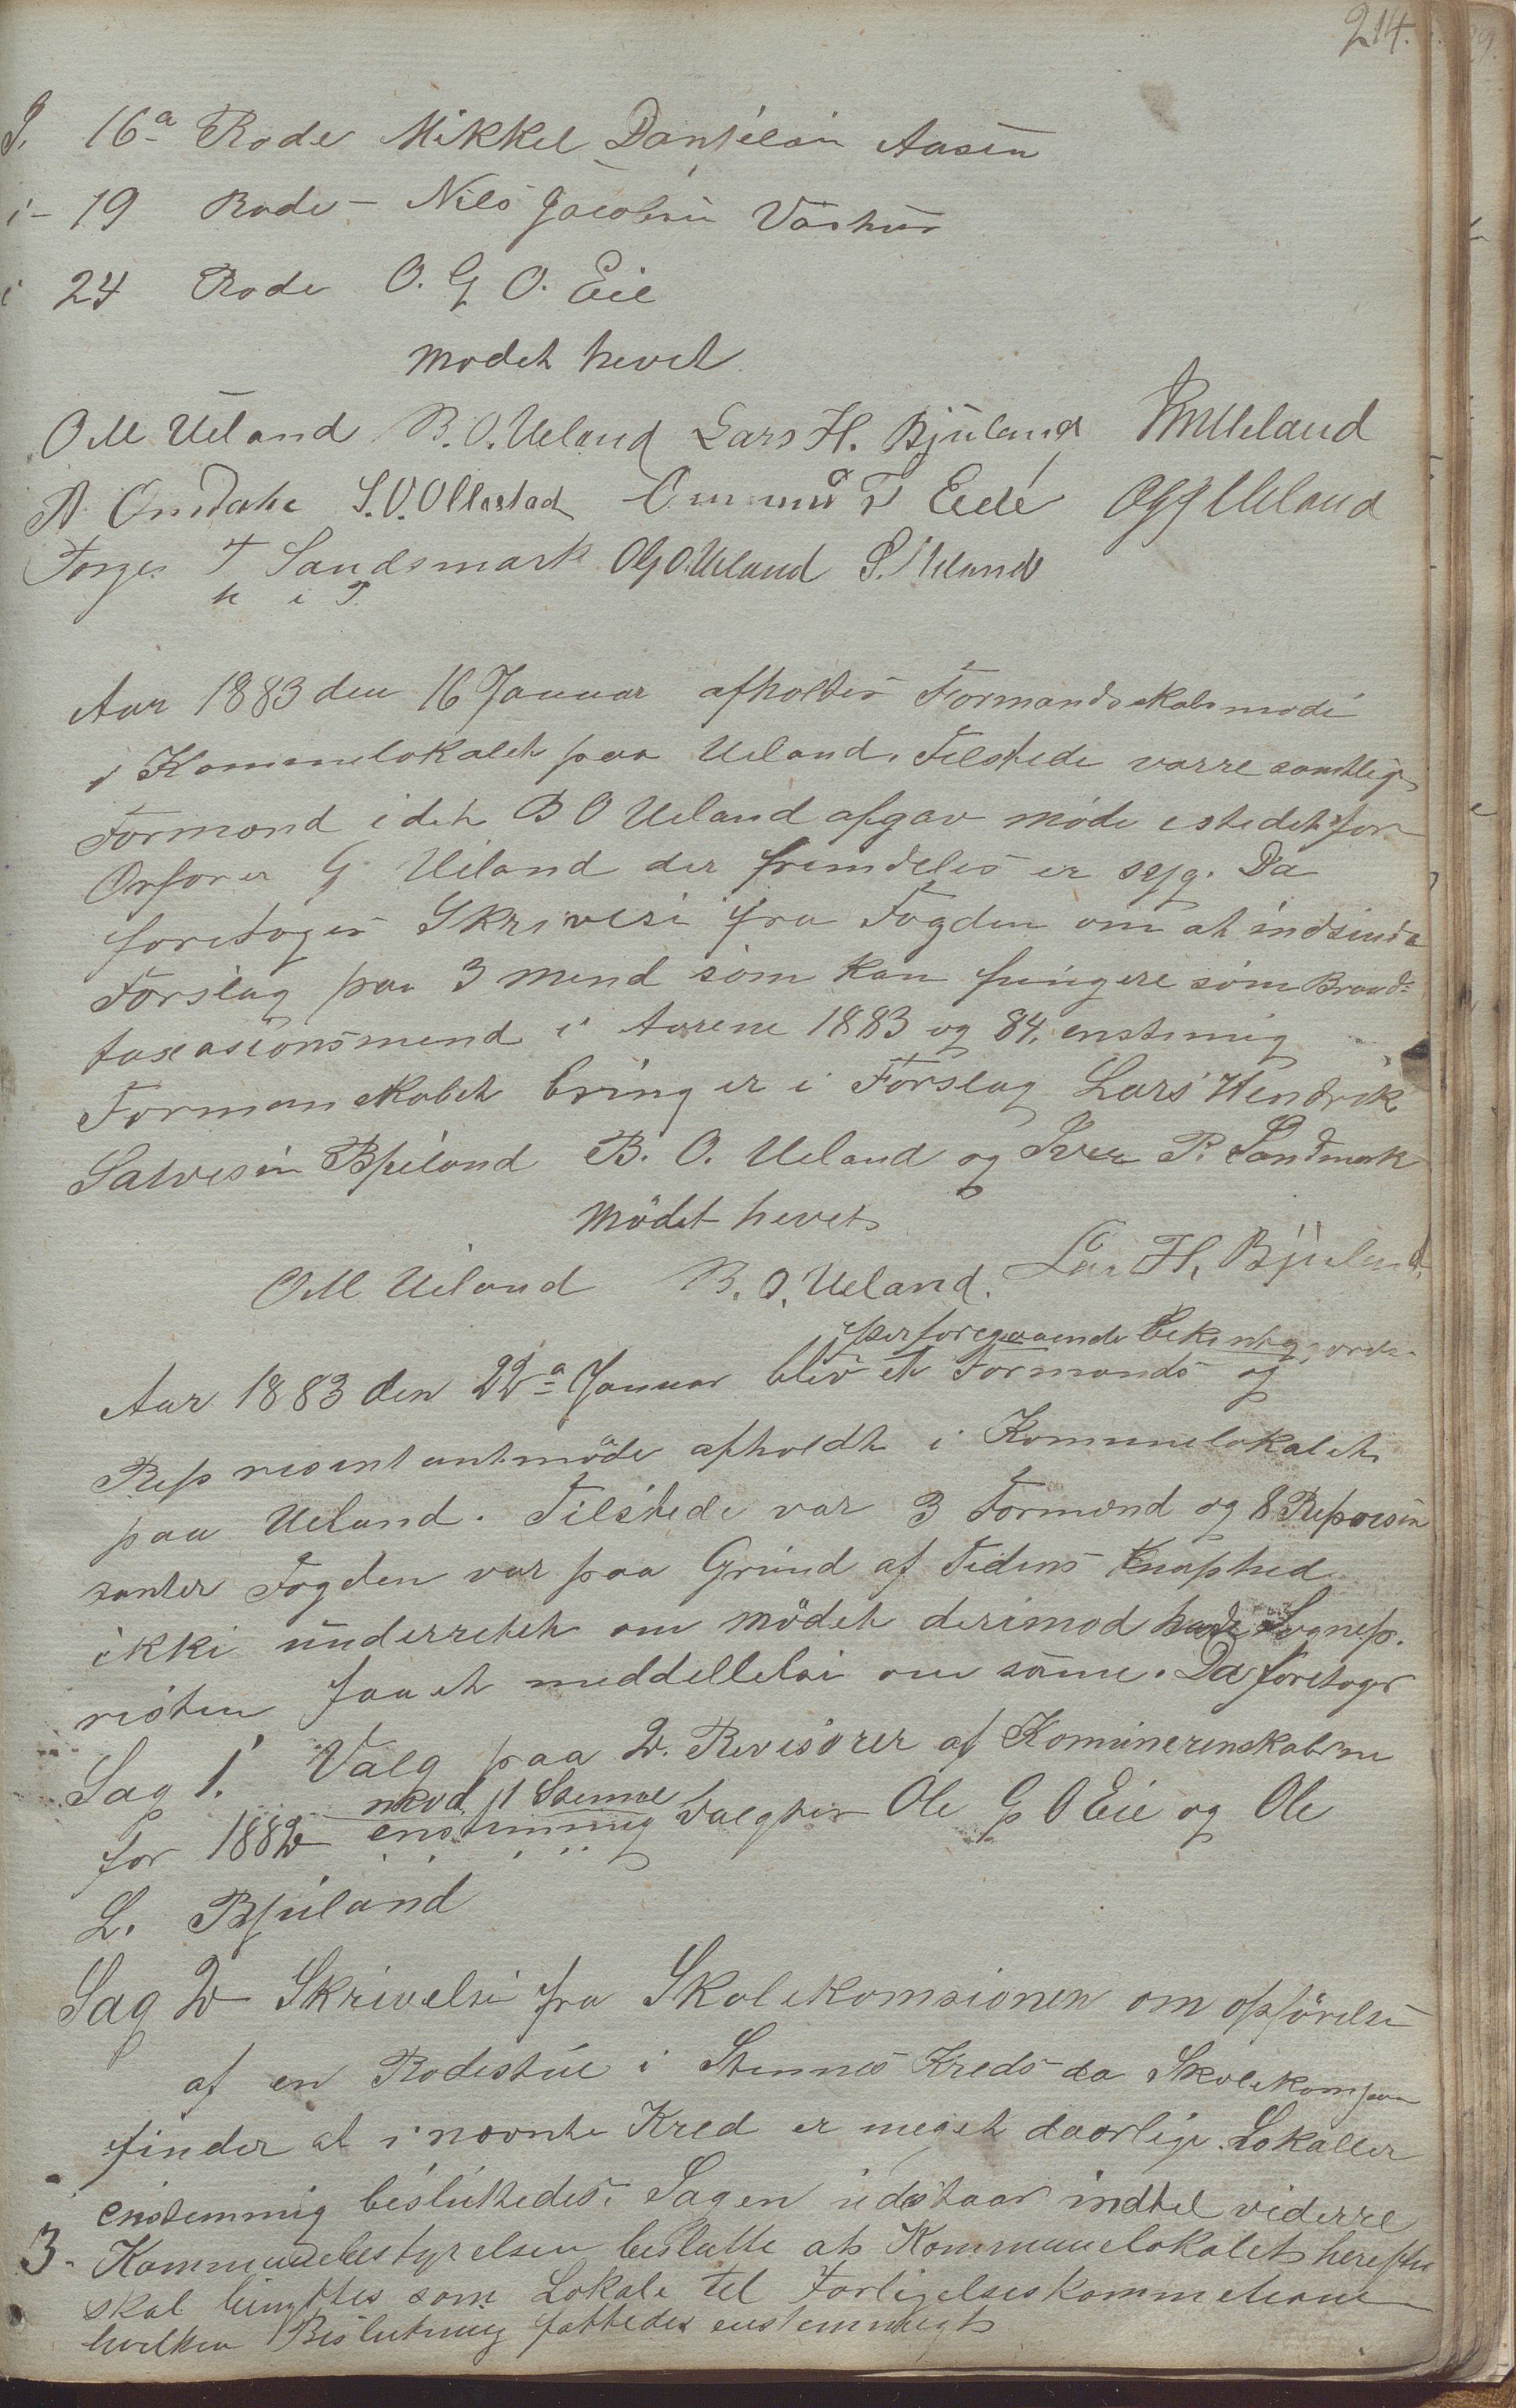 214.
I. 16a Rode Mikkel Danjelsin Aasen
i - 19 Rode - Nils Jacobsin
i 24 Rode O. G O. Eie
Modet hevet
OM Ueland B. O. Ueland Lars H. Bjuland
A Omdahl S. O. Ollestad Ommund T Eide OGG Ueland
Torger T Sandsmark OGO. Ueland S. Ueland
h i T.
Aar 1883 den 16 Januar afholtes Formandskabsmode
i Kommelokalet paa Ueland. Tilstede varre samtlige
Formænd idet B O Ueland afgav møde istedetfor
Orforer G Ueland der fremdeles er syg. Da
foretoges Skrivesi fra Fogden om at indsende
Forslag paa 3 mend som kan fungere som Brand-
taxasionsmend i Aarene 1883 og 84. enstemig
Formanskabet bringer i Forslag Lars Hendrik
Salvesin Bjuland B. O. Ueland og Iver P. Sandmark
Mödet hevet
OM Ueland B. O. Ueland. Lars H. Bjuland.
efter foregaaende
Aar 1883 den 22a Januar blev et Formands og
Represintantmöde afholdt i Kommunelokalet
paa Ueland. Tilstede var 3 Formænd og 8 Represin
tanter Fogden var paa Grund af Tidens Knaphed
ikki underrettet om Mödet derimod havde Sognep.
risten faaet meddellelsi om same. Da foretoges
Sag 1. Valg paa 2. Revisorer af Komunerenskaberne
mod 1 Stemme
for 1882 enstemmig valgtes Ole G O Eie og Ole
L. Bjuland
Sag 2 Skrivelsi fra Skolekomsionen om opförelse
af en Rodestue i Stennes Kreds da Skolekom
finder at i nævnte Kred er meget daarlige Lokaller
enstemmig besluttedes. Sagen udstaar indtil viderre
3. Kommunebestyrelsen beslutte at Kommunelokalet herefter
skal benyttes som Lokale til Forligelseskommissionen
hvilken Beslutning fattedes enstemmigt